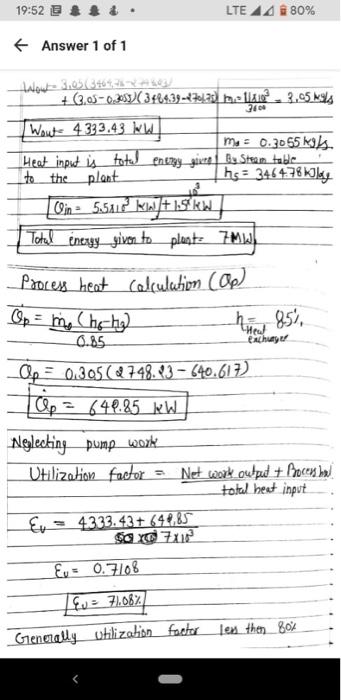 19:52 LTE 80%
← Answer 1 of 1
+ (3.05-0.3055)(3484.39-2701.75) ṁ₁= 11×10³/3600 = 3.05 kg/s
Wout= 4333.43 kW
ṁ₆ = 0.3055 kg/s
Heat input is total energy given By Steam table
to the plant h₅ = 3464.78 kJ/kg
Qin = 5.5×10³ kW + 1.5×10³ kW
Total energy given to plant= 7MW
Process heat Calculation (Qp)
Q̇p = ṁ₆ (h₆-h₉) / 0.85 η Heat exchanger = 85%
Q̇p = 0.305(2748.23-640.617)
Q̇p = 649.85 kW
Neglecting pump work
Utilization factor = Net work output + Process heat
total heat input
Ɛu = 4333.43+649.85
7×10³
Ɛu = 0.7108
Ɛu = 71.08%
Generally utilization factor less then 80%